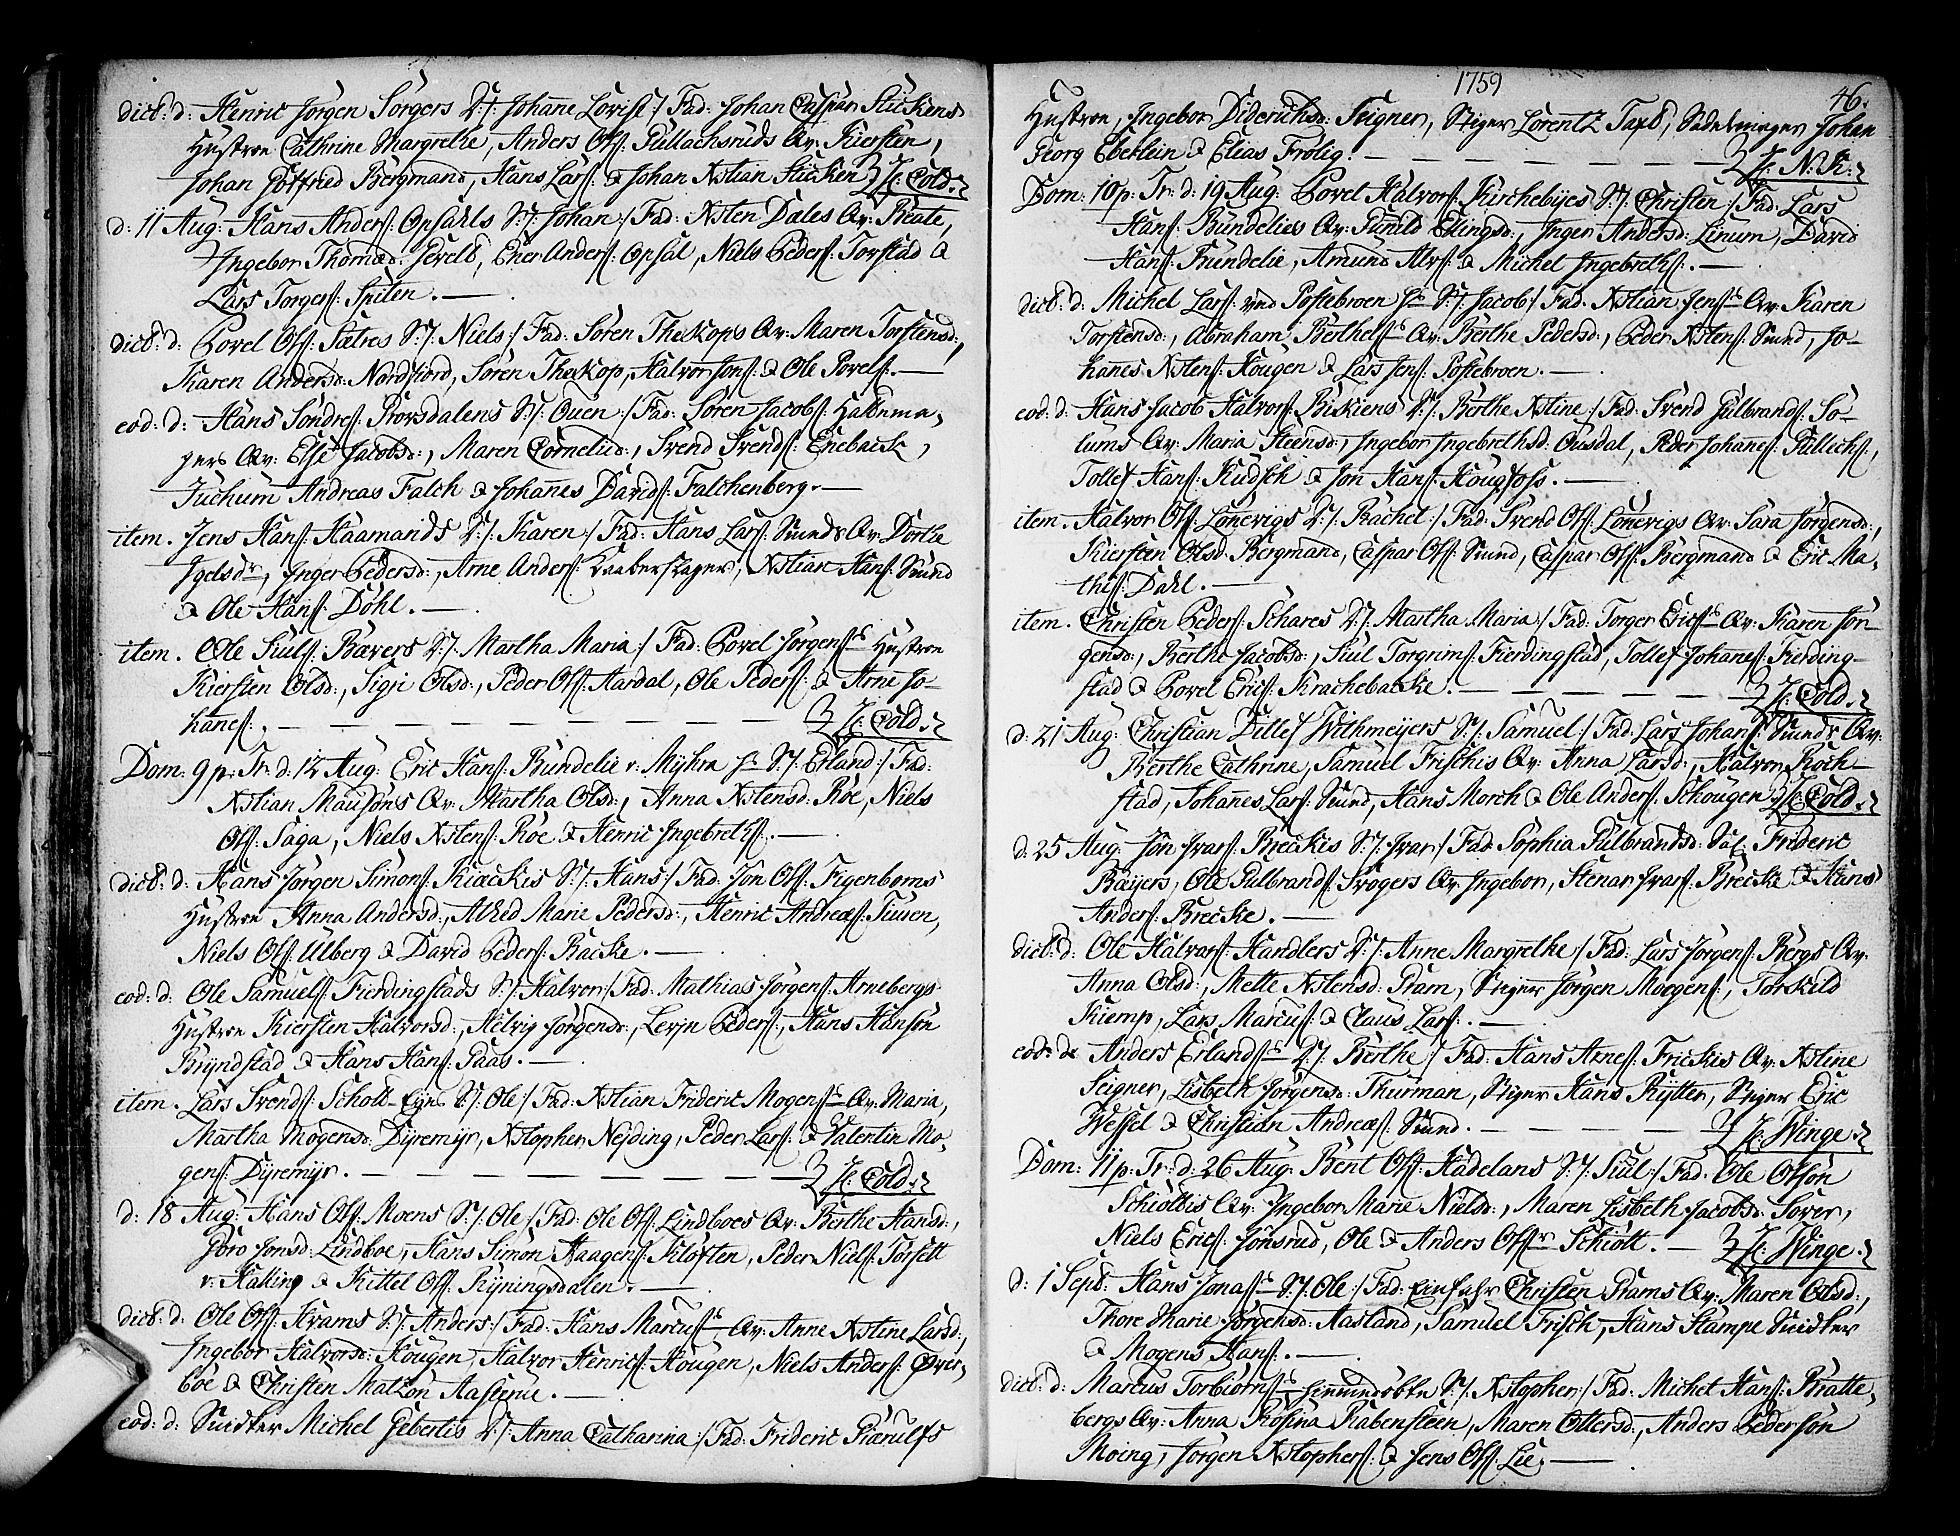 dict: d: Henric Jörgen Sörgers D:/: Johane Lovise :/ Fad: Johan Caspar Stückens
Hustroe Cathrine Margrethe, Anders Ols: Püllachsruds Qv: Kiersten,
Johan Gotfried Bergmand, Hans Lars: & Johan Xstian Stücken H: Cold.
d: 11 Aug: Hans Anders: Opsahls S:/: Johan :/ Fad: Xsten Dales Qv: Beate,
Ingebor Thomæd: Jevels, Ener Anders: Opsal, Niels Peders: Torstad &
Lars Torgers: Spiten.
dict: d: Povel Ols: Sætres S:/: Niels :/ Fad: Sören Thekops Qv: Maren Torstensd:,
Karen Andersd: Nordfiord, Sören Thekop, Halvor Jons: & Ole Povels:
eod: d: Hans Söndres: Prorsdalens S:/: Ouen :/ Fad: Sören Jacobs:
Qv: Else Jacobsd:, Maren Cornelid:, Svend Svends: Enebach,
Juchum Andreas Falch & Johanes Davids: Falchenberg.
item. Jens Hans: Haamands D:/: Karen :/ Fad: Hans Lars: Sunds Qv: Dorthe
Igelsdr, Inger Pedersd:, Arne Anders: Xstian Hans: Sund
& Ole Hans: Döhl.
item. Ole Siuls: Bævers D:/: Martha Maria :/ Fad: Povel Jörgens: Hustroe
Kiersten Olsd:, Sigri Olsd:, Peder Ols: Aardal, Ole Peders: & Arne Jo-
hanes: H: Cold.
Dom: 9 p: Tr: d: 12 Aug: Eric Hans: Bundelie v: Myhra S:/: Erland :/ Fad:
Xstian Mausöns Qv: Martha Olsd:, Anna Xstensd: Röe, Niels
Ols: Saga, Niels Xstens: Röe & Henric Ingebreths:
dict: d: Hans Jörgen Simons: Kiækis S:/: Hans :/ Fad: Jon Ols: Figenboms
Hustroe Anna Andersd:, Alhed Marie Pedersd:, Henric Andreæs: Tuuen,
Niels Ols: Ulberg & David Peders: Backe.
eod: d: Ole Samuels: Fierdingstads S:/: Halvor :/ Fad: Mathias Jörgens: Arnebergs
Hustroe Kiersten Halvorsd:, Helvig Jörgensd:, Levin Peders:, Hans Hansön
Bryndstad & Hans Hans: Paas.
item. Lars Svends: Schott-Eyes S:/: Ole :/ Fad: Xstian Frideric Mogens: Qv: Maria,
Martha Mogensd: Dyremyr, Xstopher Neyding, Peder Lars: & Valentin Mo-
gens: Dyremyr. H: Cold.
d: 18 Aug: Hans Ols: Moens S:/: Ole :/ Fad: Ole Ols: Lindboes Qv: Berthe Hansd:,
Goro Jonsd: Lindboe, Hans Simon Haagens: Klöften, Peder Niels: Torsett
v: Haking & Kittel Ols: Ryningsdalen.
dict: d: Ole Ols: Hvams S:/: Anders :/ Fad: Hans Marcus: Qv: Anne Xstine Larsd:,
Ingebor Halvorsd: Hougen, Halvor Henrics: Hougen, Niels Anders: Over-
böe & Christen Matzön Aasterue.
eod: d: Michel Geberlis D:/: Anna Catharina :/ Fad: Frideric Pærulfs
1759
46.
Hustroe, Ingebor Diderichsd: Seigner, Stiger Lorentz Taxs, Johan
Georg Eberlein & Elias Frölig. H: N: K:
Dom: 10 p: Tr: d: 19 Aug: Povel Halvors: Kirchebyes S:/: Christen :/ Fad: Lars
Hans: Bundelies Qv: Gunild Elingsd:, Inger Andersd: Linum, David
Hans: Bundelie, Amund Alvs: & Michel Ingebreths:
dict: d: Michel Lars: ved Postebroen S:/: Jacob :/ Fad: Xstian Jens: Qv: Karen
Torstensd:, Abraham Berthels: Qv: Berthe Pedersd:, Peder Xstens: Sund, Jo-
hanes Xstens: Hougen & Lars Jens: Postebroen.
eod: d: Hans Jacob Halvors: Biskiens D:/: Berthe Xstine :/ Fad: Svend Gulbrands: So-
lums Qv: Maria Steensd:, Ingebor Ingebrethsd: Ousdal, Peder Johanes: Püllichs:,
Tollef Hans: Kudsch & Jon Hans: Hougfoss.
item. Halvor Ols: Lönevigs D:/: Rachel :/ Fad: Svend Ols: Lönevigs Qv: Sara Jörgensd:,
Kiersten Olsd: Bergmand, Caspar Ols: Sund, Caspar Ols: Bergmand & Eric Ma-
thes: Dahl.
item. Christen Peders: Schares D:/: Martha Maria :/ Fad: Torger Erics: Qv: Karen Jör-
gensd:, Berthe Jacobsd:, Siul Torgrims: Fierdingstad, Tollef Johanes: Fierding-
stad & Povel Erics: Krachebacke. H: Cold.
d: 21 Aug: Christian Dillef Withmeyers S:/: Samuel :/ Fad: Lars Johans: Sunds Qv:
Berthe Cathrine, Samuel Frischis Qv: Anna Larsd:, Halvor Röch-
stad, Johanes Lars: Sund, Hans Morch & Ole Anders: Schougen H: Cold.
d: 25 Aug: Jon Ivars: Breckis S:/: Ivar :/ Fad: Sophia Gulbrandsd: Sal: Frideric
Bæyers, Ole Gulbrands: Srogers Qv: Ingebor, Stenar Ivars: Brecke & Hans
Anders: Brecke.
dict: d: Ole Halvors: Handlers D:/: Anne Margrethe :/ Fad: Lars Jörgens: Bergs Qv:
Anna Olsd:, Mette Xstensd: Pram, Stiger Jörgen Moegens:, Torskild
Kiemp, Lars Marcus: & Claus Lars:
eod: d: Anders Erlands: D:/: Berthe :/ Fad: Hans Arnes: Frickis Qv: Xstine
Seigner, Lisbeth Jörgensd: Thurman, Stiger Hans Rytter, Stiger Eric
Wessel & Christian Andreæs: Sund. H: Winge.
Dom: 11 p: Tr: d: 26 Aug: Bent Ols: Hadelans S:/: Siul :/ Fad: Ole Olsön
Schiöttis Qv: Ingebor Marie Nielsd:, Maren Lisbeth Jacobsd: Sover,
Niels Erics: Jonsrud, Ole & Anders Ols: Schiött. H: Winge.
d: 1 Septb: Hans Jonas: S:/: Ole :/ Fad: Einfahr Christen Prams Qv: Maren Olsd:,
Thore Marie Jörgensd: Aasland, Samuel Frisch, Hans Stampe
& Mogens Hans:
dict: d: Marcus Torbiörns: S:/: Xstopher :/ Fad: Michel Hans: Bratte-
bergs Qv: Anna Rosina Rabensteen, Maren Ottersd:, Anders Pedersön
Moing, Jörgen Xstophers: & Jens Ols: Lie.